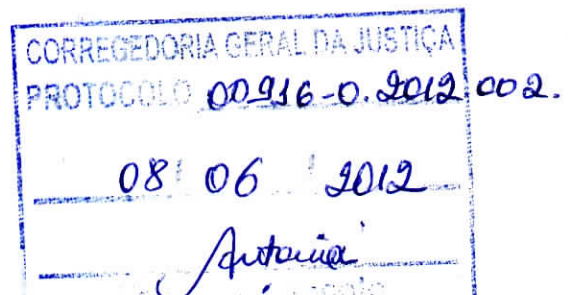 CORREGEDORIA GERAL DA JUSTIÇA
PROTOCOLO 00916-0.2012.002.
08 06 2012
Antonia